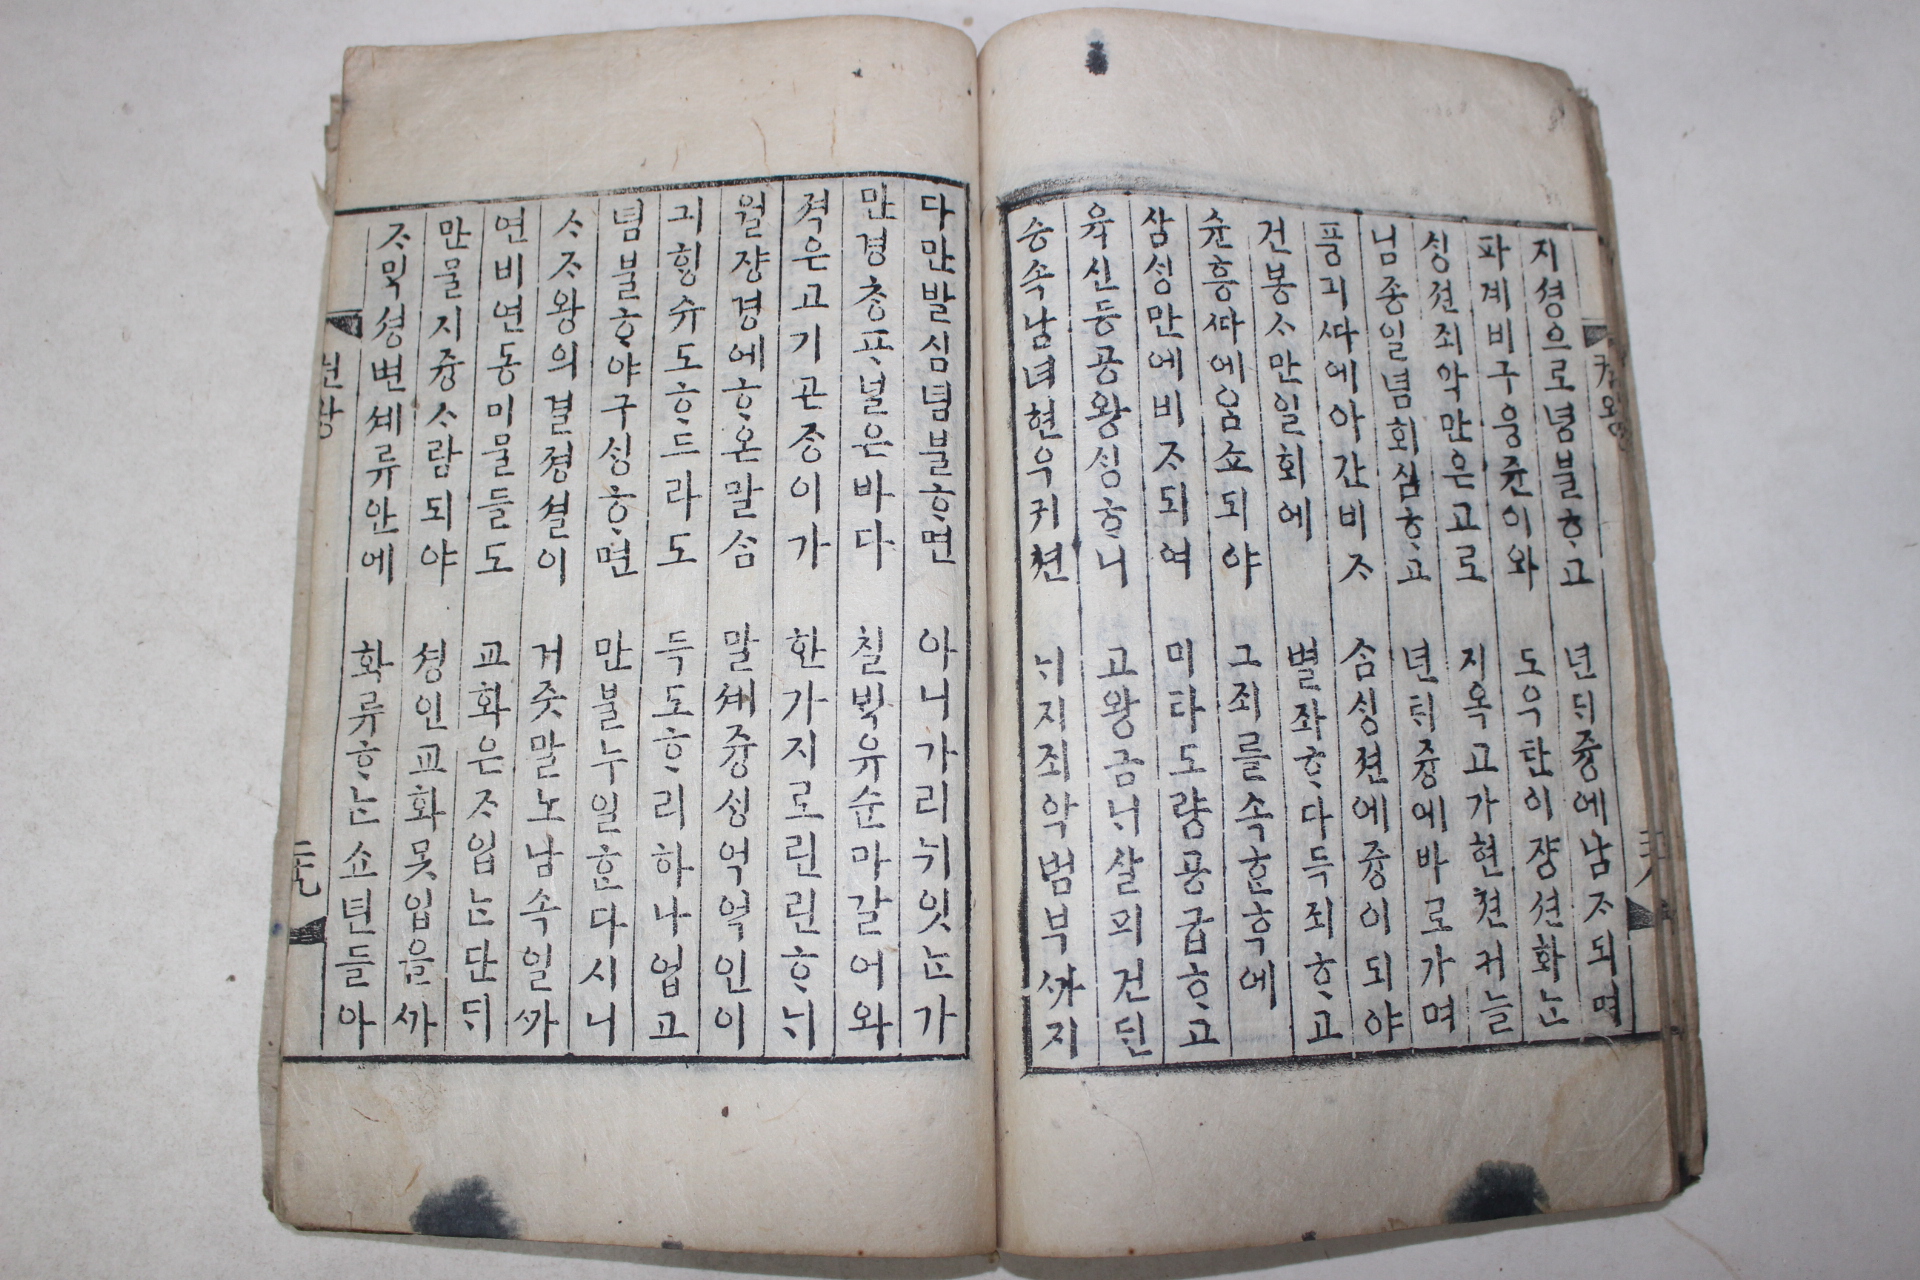 지셩으로념불ᄒᆞ고 년ᄃᆡ즁에남ᄌᆞ되며
파계비구웅쥰이와 도우탄이쟝션화ᄂᆞᆫ
싱젼죄악만은고로 지옥고가현젼커늘
님종일념회심ᄒᆞ고 년ᄃᆡ즁에바로가며
풍긔ᄯᅡ에아간비ᄌᆞ 삼싱젼에즁이되야
건봉ᄉᆞ만일회에 별좌ᄒᆞ다득죄ᄒᆞ고
슌흥ᄯᅡ에암쇼되야 그죄를속ᄒᆞᆫ후에
삼싱만에비ᄌᆞ되여 미타도량공급ᄒᆞ고
육신등공왕싱ᄒᆞ니 고왕금ᄂᆡ살펴건ᄃᆡᆫ
승속남녀현우귀쳔 ᄂᆡ지죄악범부ᄭᅡ지
다만발심념불ᄒᆞ면 아니가리뉘잇ᄂᆞᆫ가
만경충파널은바다 칠빅유슌마갈어와
젹은고기곤종이가 한가지로린린ᄒᆞᄂᆡ
월쟝경에ᄒᆞ온말ᄉᆞᆷ 말셰즁싱억억인이
긔힝슈도ᄒᆞ드라도 득도ᄒᆞ리하나업고
념불ᄒᆞ야구싱ᄒᆞ면 만불누일ᄒᆞᆫ다시니
ᄉᆞᄌᆞ왕의결졍셜이 거즛말노남속일ᄭᅡ
연비연동미물들도 교화은ᄌᆞ입ᄂᆞᆫ단ᄃᆡ
만물지즁ᄉᆞ람되야 셩인교화못입을ᄭᅡ
ᄌᆞ믹셩변셰류안에 화류ᄒᆞᄂᆞᆫ쇼년들아